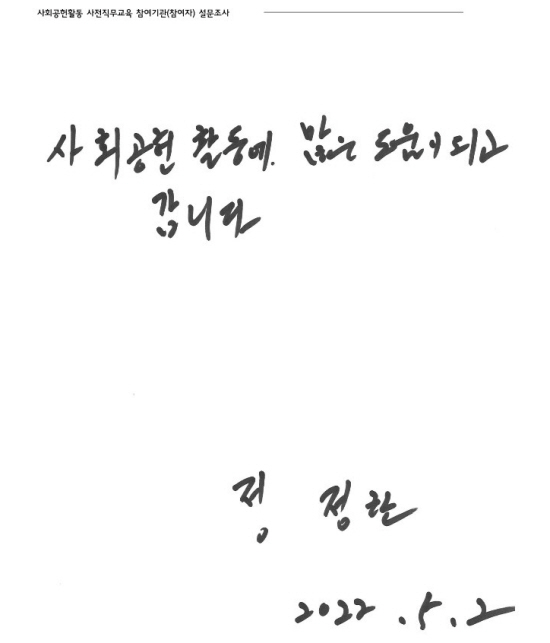 사회공헌활동 사전직무교육 참여기관(참여자) 설문조사
사회공헌 활동에. 많은 도움이 되고
갑니다
정 정란
2022.5.2